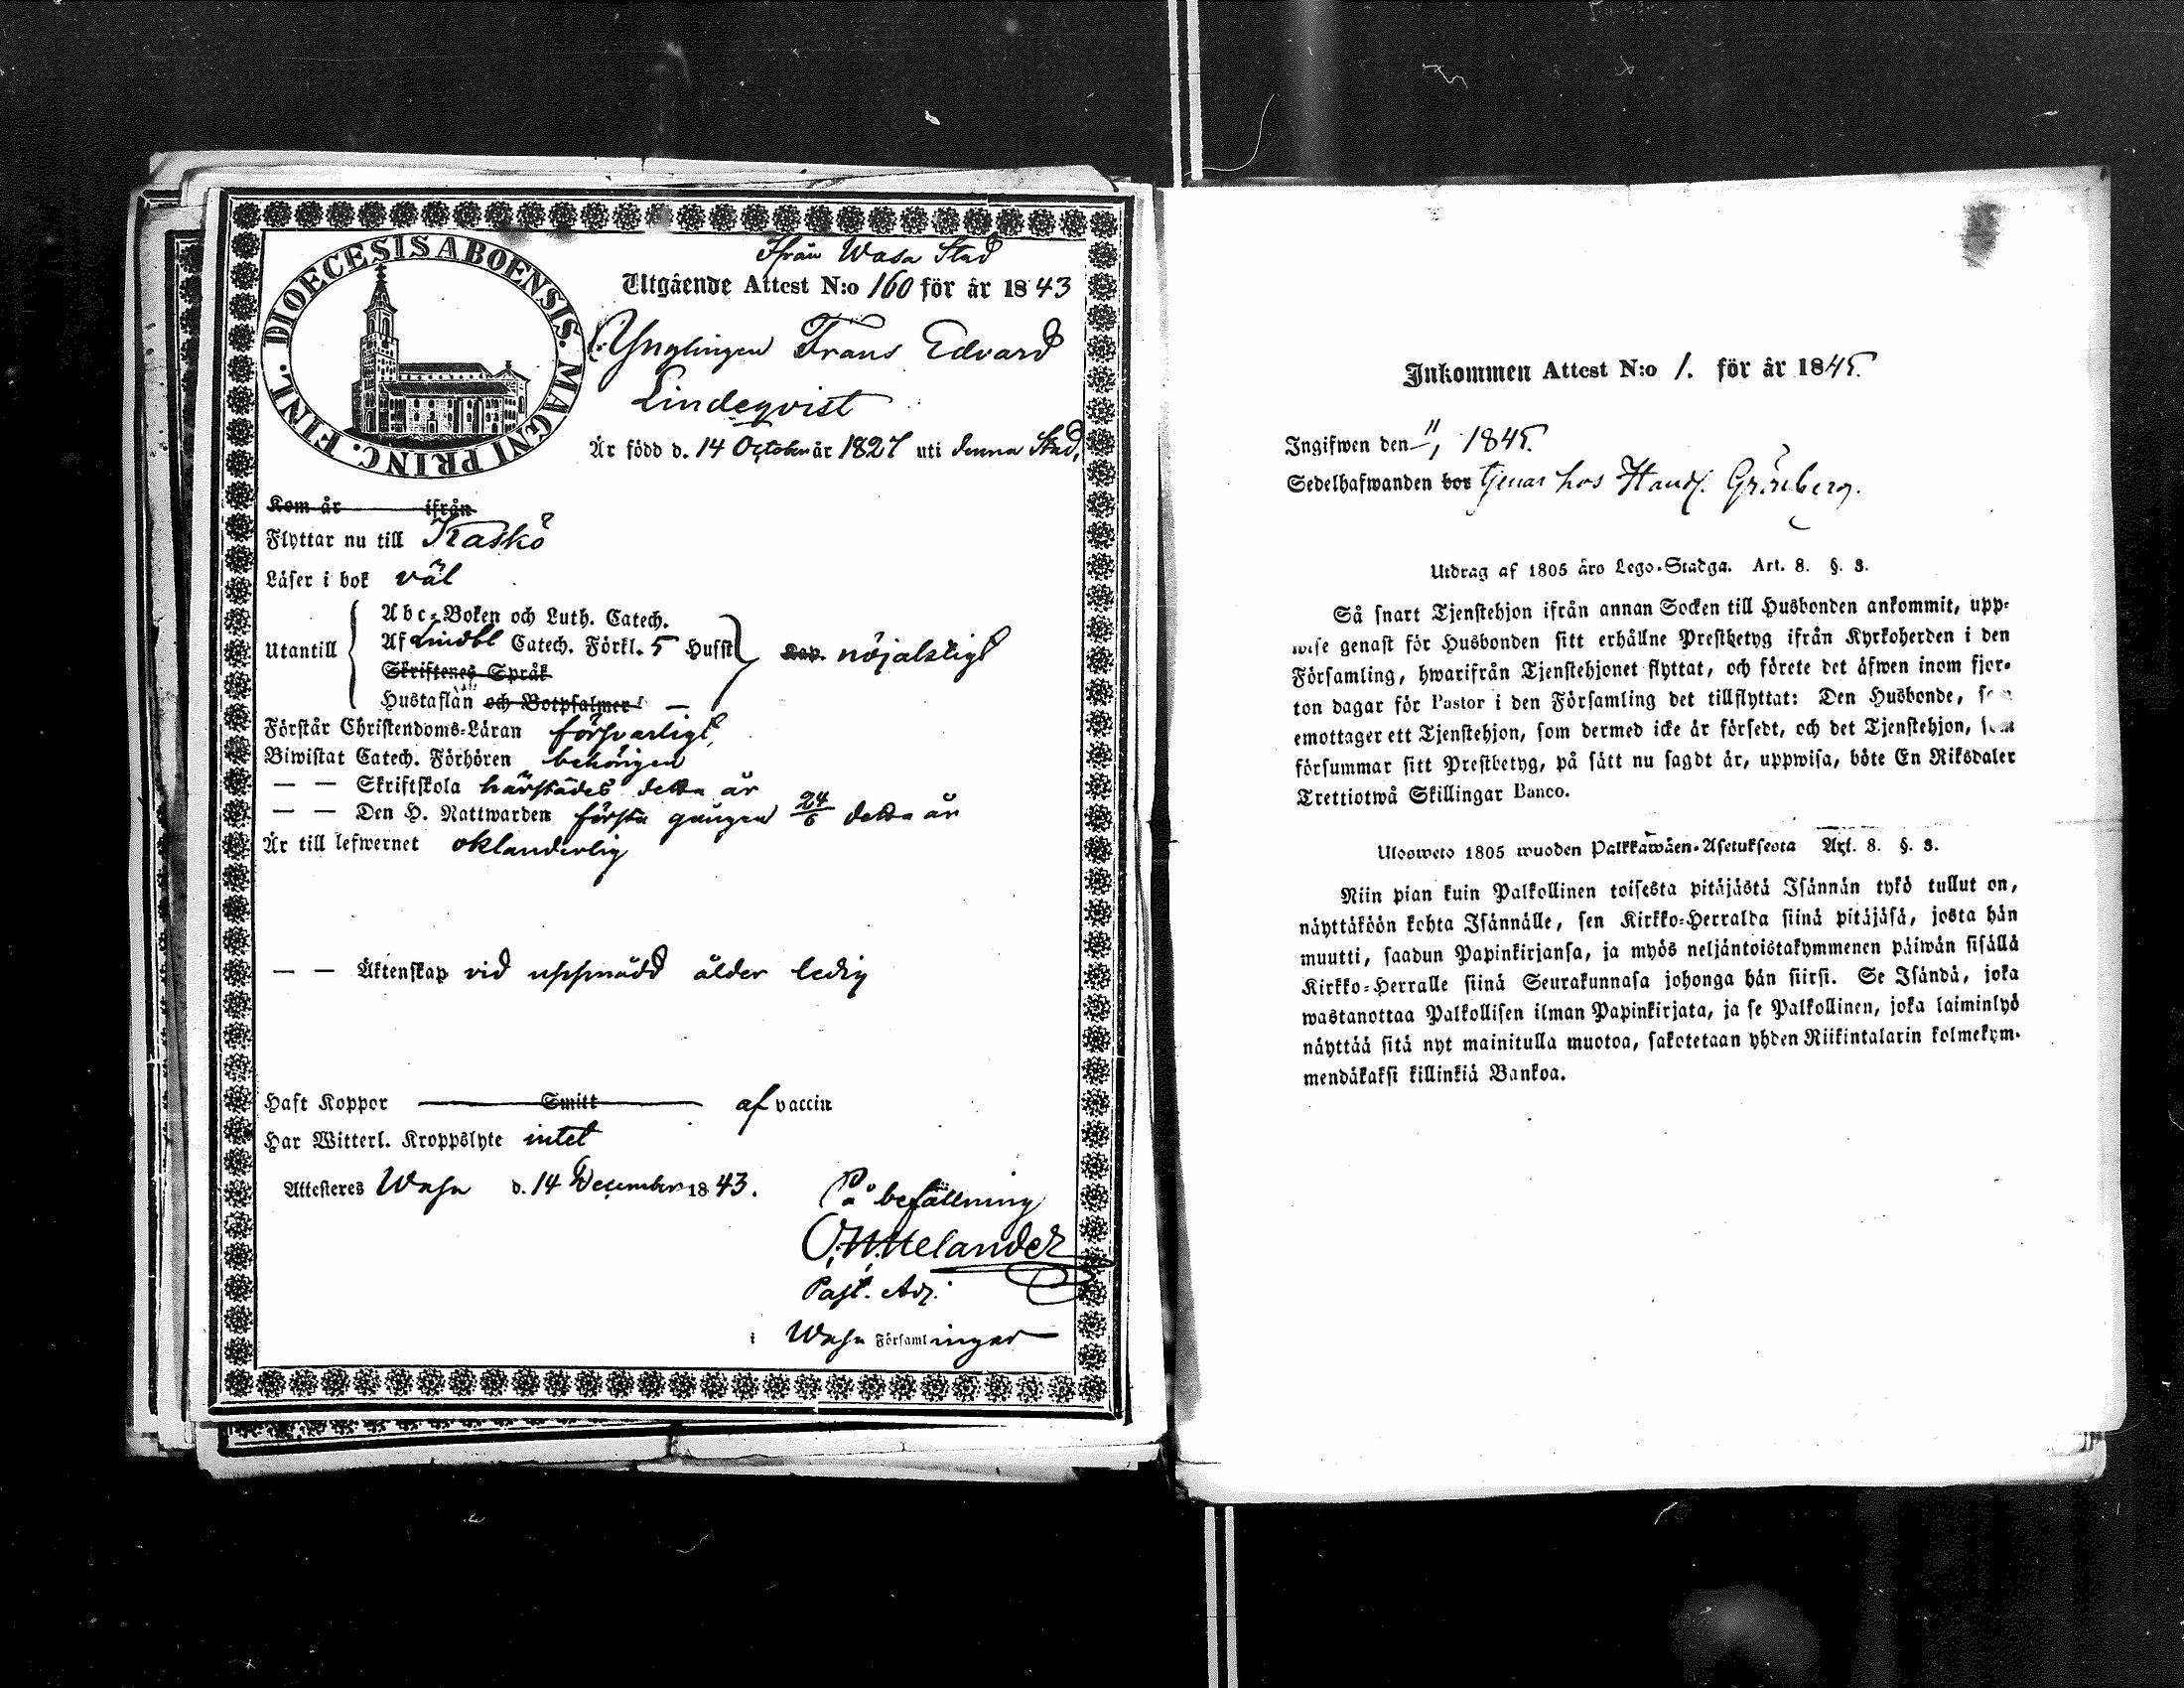 DIOECESIS ABOENSIS. MAGNI PRINC. FINL.
Ifrån Wasa Stad
Utgående Attest N:o 160 för år 1843
Ynglingen Frans Edvard
Lindeqvist
Är född d. 14 October år 1827 uti denna Stad,
Kom år ifrån
Flyttar nu till Kaskö
Läser i bok väl
Utantill
Abc-Boken och Luth. Catech.
Af Lindbl Catech. Förkl. 5 Hufst
Kap. nöjaktligt
Skriftenes Språk
Hustaflan och Botpsalmer
Förstår Christendoms-Läran försvarligt,
Biwistat Catech. Förhören behörigen
— — Skriftskola härstädes detta år
— — Den H. Nattwarden första gången 24/6 detta år
Är till lefwernet oklanderlig
— — Äktenskap vid uppnådd ålder ledig
Haft Koppor Smitt af vaccin
Har Witterl. Kroppslyte intet
Attesteres Wasa d. 14 December 1843.
På befallning
Melander
Past. Adj.
i Wasa Församlingar
Inkommen Attest N:o 1. för år 1845.
Ingifwen den 1845.
Sedelhafwanden bor tjenar hos Handl. Grönberg.
Utdrag af 1805 års Lego-Stadga. Art. 8. §. 3.
Så snart Tjenstehjon ifrån annan Socken till Husbonden ankommit, upp-
wise genast för Husbonden sitt erhållne Prestbetyg ifrån Kyrkoherden i den
Församling, hwarifrån Tjenstehjonet flyttat, och förete det äfwen inom fjor-
ton dagar för Pastor i den Församling det tillflyttat: Den Husbonde, som
emottager ett Tjenstehjon, som dermed icke är försedt, och det Tjenstehjon, som
försummar sitt Prestbetyg, på sätt nu sagdt är, uppwisa, böte En Riksdaler
Trettiotwå Skillingar Banco.
Ulosweto 1805 wuoden Palkkawäen-Asetuksesta Art. 8. §. 3.
Niin pian kuin Palkollinen toisesta pitäjästä Isännän tykö tullut on,
näyttäköön kohta Isännälle, sen Kirkko-Herralda siinä pitäjäsä, josta hän
muutti, saadun Papinkirjansa, ja myös neljäntoistakymmenen päiwän sisällä
Kirkko-Herralle siinä Seurakunnasa johonga hän siirsi. Se Isändä, joka
wastanottaa Palkollisen ilman Papinkirjata, ja se Palkollinen, joka laiminlyö
näyttää sitä nyt mainitulla muotoa, sakotetaan yhden Riikintalarin kolmekym-
mendäkaksi killinkiä Bankoa.